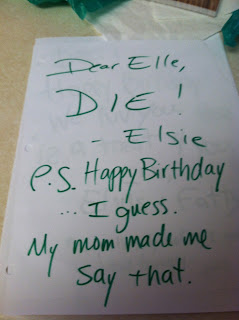 Dear Elle,
DIE!
- Elsie
P.S. Happy Birthday
... I guess.
My mom made me
say that.